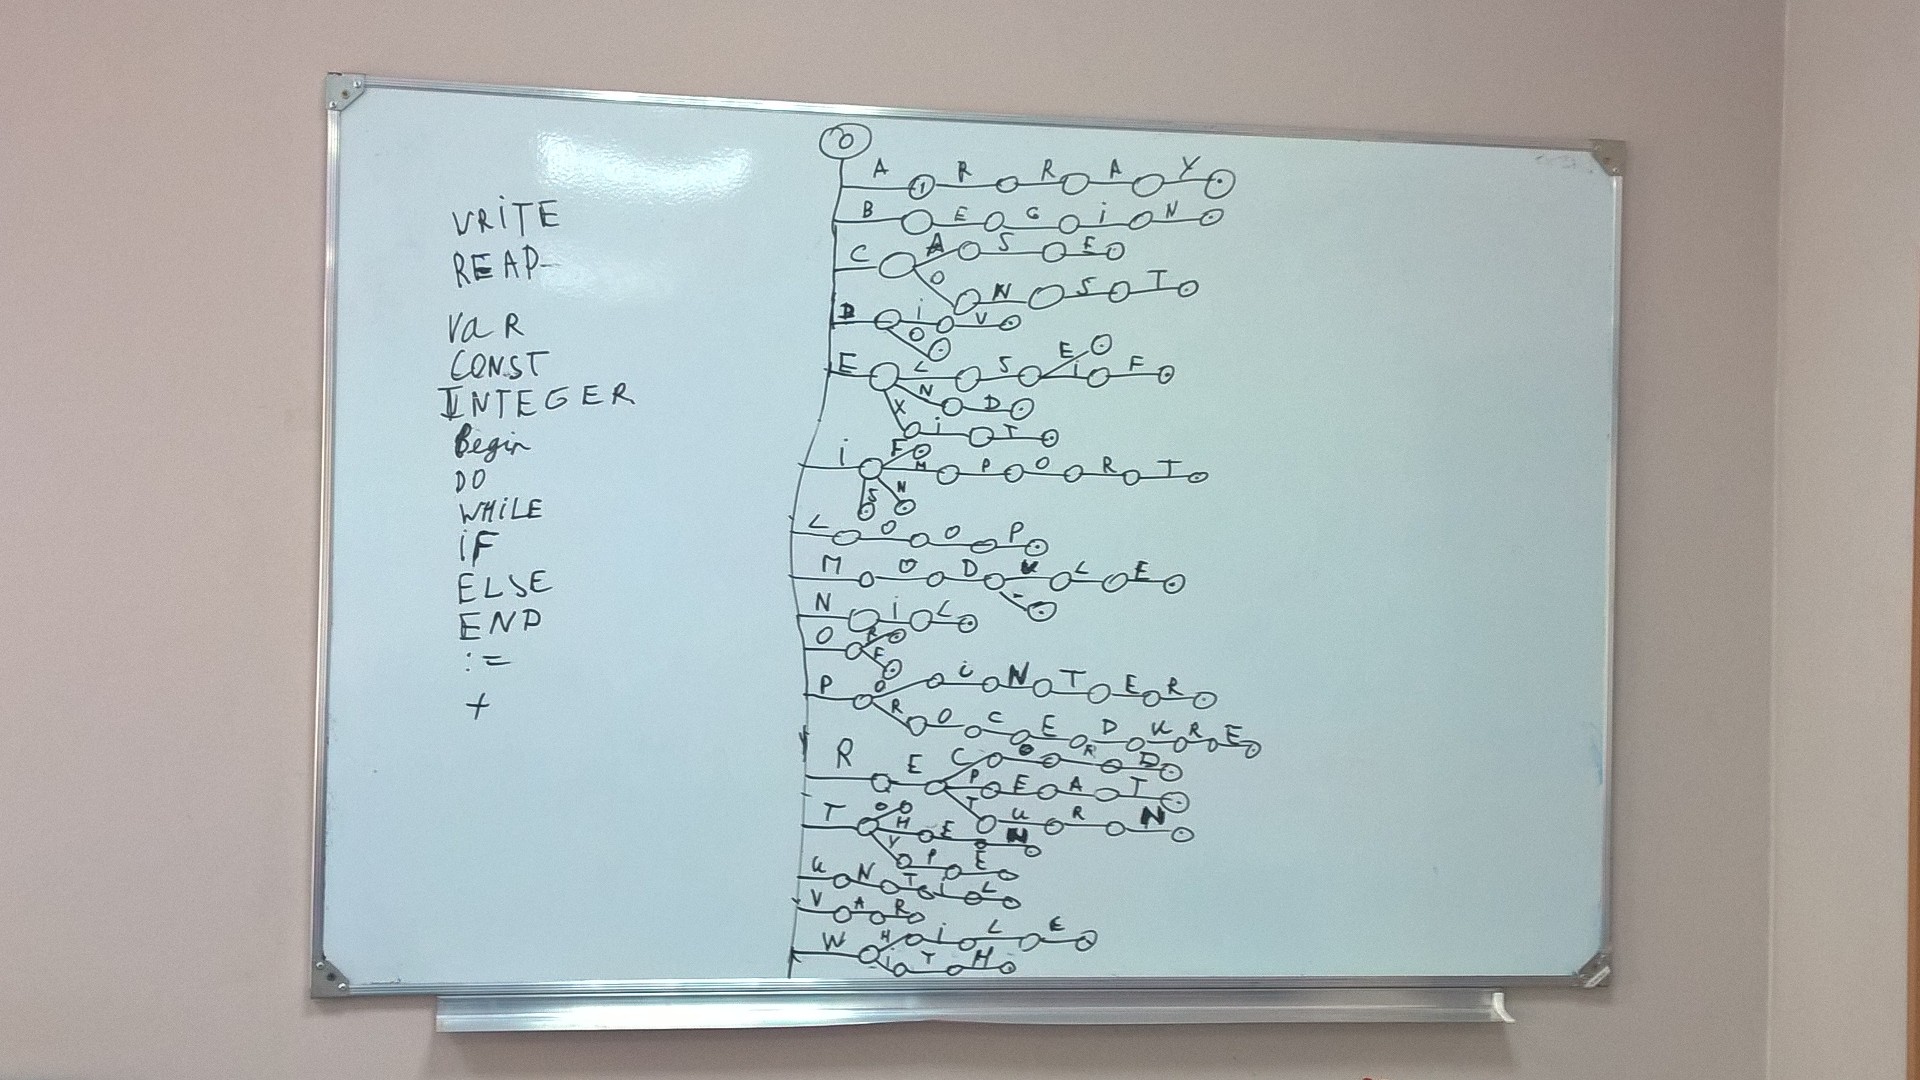 WRITE
READ
VaR
CONST
INTEGER
Begin
DO
WHiLE
iF
ELSE
END
:=
+
0
A 1 R R A Y
B E G i N
C A S E
O N S T
D i V
O
E L S E
i F
N D
X i T
i F
M P O R T
S N
L O O P
M O D U L E
-
N i L
O R
F
P O i N T E R
R O C E D U R E
R E C O R D
P E A T
T U R N
T O
H E N
Y P E
U N T i L
V A R
W H i L E
i T H